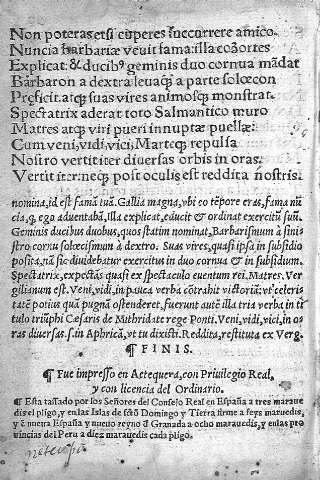 Non poteras etsi cuperes succurrere amico.
Nuncia barbariæ venit fama: illa cohortes
Explicat: & ducibꝰ geminis duo cornua mādat
Barbaron a dextra levaqꝫ a parte solœcon
Preficit. atqꝫ suas vires animosqꝫ monstrat.
Spectatrix aderat toto Salmantico muro
Matres atqꝫ viri pueri innuptæ puellæ:
Cum veni, vidi, vici, Marteqꝫ repulsa
Nostro vertit iter diversas orbis in oras.
Vertit iter: neqꝫ post oculis est reddita nostris.
nomina, id est famā tuā. Gallia magna, vbi eo tēpore eras, fama nū
cia, q̄ ego aduentabā, illa explicat, educit & ordinat exercitū suū.
Geminis ducibus duobus, quos statim nominat, Barbarismum à sini
stro cornu solœcismum à dextro. Suas vires, quasi ipsa in subsidio
posita, nā sic diuidebatur exercitus in duo cornua & in subsidium.
Spectatrix, expectās quasi ex spectaculo euentum rei. Matres. Ver
gilianum est. Veni, vidi, in pauca verba cōtrahit victoriā: vt celeri
tatē potius quā pugnā ostenderet, fuerunt autē illa tria verba in ti
tulo triūphi Cæsaris de Mithridate rege Ponti. Veni, vidi, vici, in o
ras diuersas. s. in Aphricā, vt tu dixisti. Reddita, restituta ex Verg.
¶ FINIS.
¶ Fue impresso en Actequera, con Priuilegio Real,
y con licencia del Ordinario.
¶ Esta tassado por los Señores del Consejo Real en España a tres maraue
dis el pligo, y en las Islas de sctō Domingo y Tierra firme a seys marauedis,
y ē nueva España y nueuo reyno đ Granada a ocho marauedis, y en las pro
uincias del Peru a diez marauedis cada pligo.